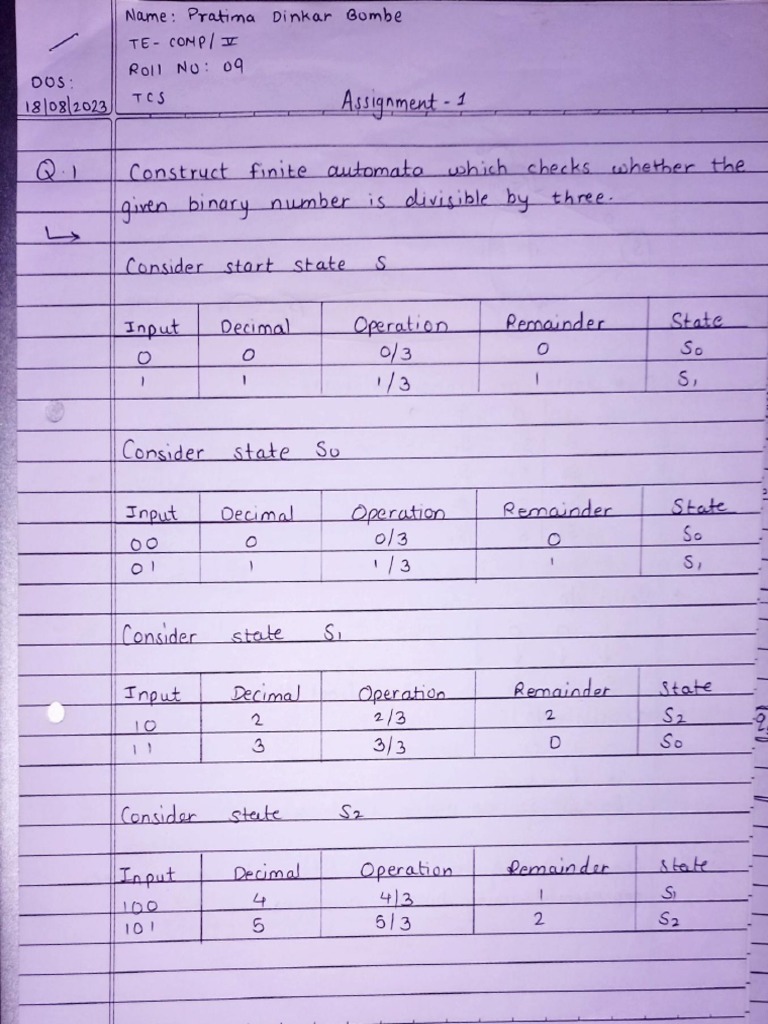 Name: Pratima Dinkar Bombe
TE- COMP/ V
Roll No: 09
DOS:
18/08/2023
TCS
Assignment - 1
Q.1 Construct finite automata which checks whether the
given binary number is divisible by three.
↳
Consider start state S
Input Decimal Operation Remainder State
0 0 0/3 0 S0
1 1 1/3 1 S1
Consider state S0
Input Decimal Operation Remainder State
00 0 0/3 0 S0
01 1 1/3 1 S1
Consider state S1
Input Decimal Operation Remainder State
10 2 2/3 2 S2
11 3 3/3 0 S0
Consider state S2
Input Decimal Operation Remainder State
100 4 4/3 1 S1
101 5 5/3 2 S2